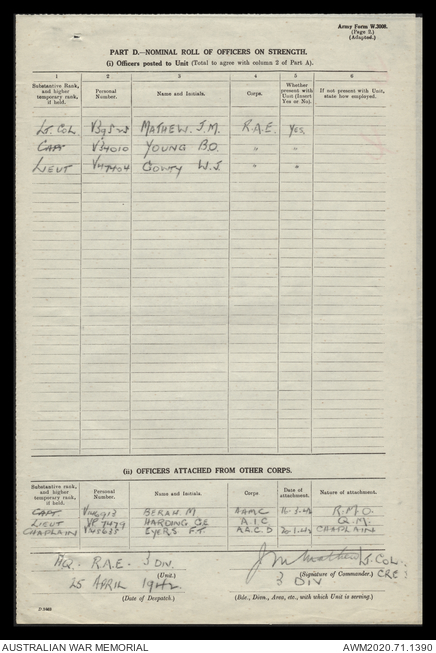 Army Form W.3008.
(Page 2.)
(Adapted.)
PART D.—NOMINAL ROLL OF OFFICERS ON STRENGTH.
(i) Officers posted to Unit (Total to agree with column 2 of Part A).
1 2 3 4 5 6
Substantive Rank, and higher temporary rank, if held. Personal Number. Name and Initials. Corps. Whether present with Unit (Insert Yes or No). If not present with Unit, state how employed.
Lt. Col MATHEW. J.M. R.A.E. Yes.
CAPT V34010 YOUNG B.O. " "
LIEUT V47404 GOWTY W.J. " "
(ii) OFFICERS ATTACHED FROM OTHER CORPS.
Substantive rank, and higher temporary rank, if held. Personal Number. Name and Initials. Corps Date of attachment. Nature of attachment.
CAPT BERAN M AAMC R.M.O.
LIEUT HARDING A.I.C Q.M.
CHAPLAIN EYERS F.T. CHAPLAIN
HQ. R.A.E. 3 DIV. J M Mathew Lt. Col.
(Unit.) (Signature of Commander.) CRE
25 APRIL 1942 3 DIV
(Date of Despatch.) (Bde., Divn., Area, etc., with which Unit is serving.)
AUSTRALIAN WAR MEMORIAL AWM2020.71.1390